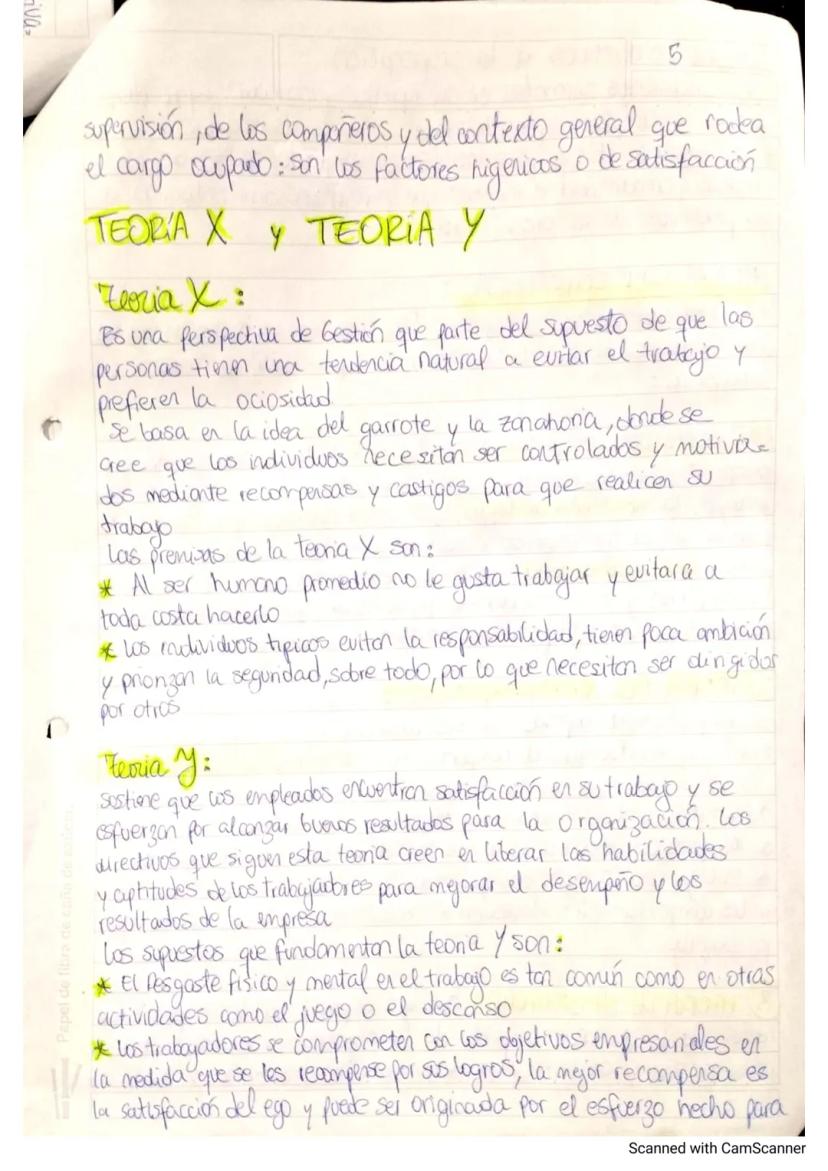 5
supervisión, de los compañeros y del contexto general que rodea
el cargo ocupado: son los factores higenicos o de satisfacción
TEORÍA X y TEORÍA Y
Teoria X:
Es una perspectiva de Gestión que parte del supuesto de que las
personas tienen una tendencia natural a evitar el trabajo y
prefieren la ociosidad
Se basa en la idea del garrote y la zanahoria, donde se
cree que los individuos necesitan ser controlados y motivia=
dos mediante recompensas y castigos para que realicen su
trabajo
Las premisas de la teoria X son:
* Al ser humano promedio no le gusta trabajar y evitara a
toda costa hacerlo
* Los individuos tipicos evitan la responsabilidad, tienen poca ambición
y priorizan la seguridad, sobre todo, por lo que necesitan ser dirigidos
por otros
Teoria Y:
sostiene que los empleados encuentran satisfacción en su trabajo y se
esfuerzan por alcanzar buenos resultados para la organización. Los
directivos que siguen esta teoria creen en literar las habilidades
y aptitudes de los trabajadores para mejorar el desempeño y los
resultados de la empresa
Los supuestos que fundamentan la teoria Y son:
* El Desgaste fisico y mental en el trabajo es tan común como en otras
actividades como el juego o el descanso
* Los trabajadores se comprometen con los objetivos empresariales en
la medida que se les recompense por sus logros, la mejor recompensa es
la satisfacción del ego y puede ser originada por el esfuerzo hecho para
Papel de fibra de caña de azúcar.
Scanned with CamScanner